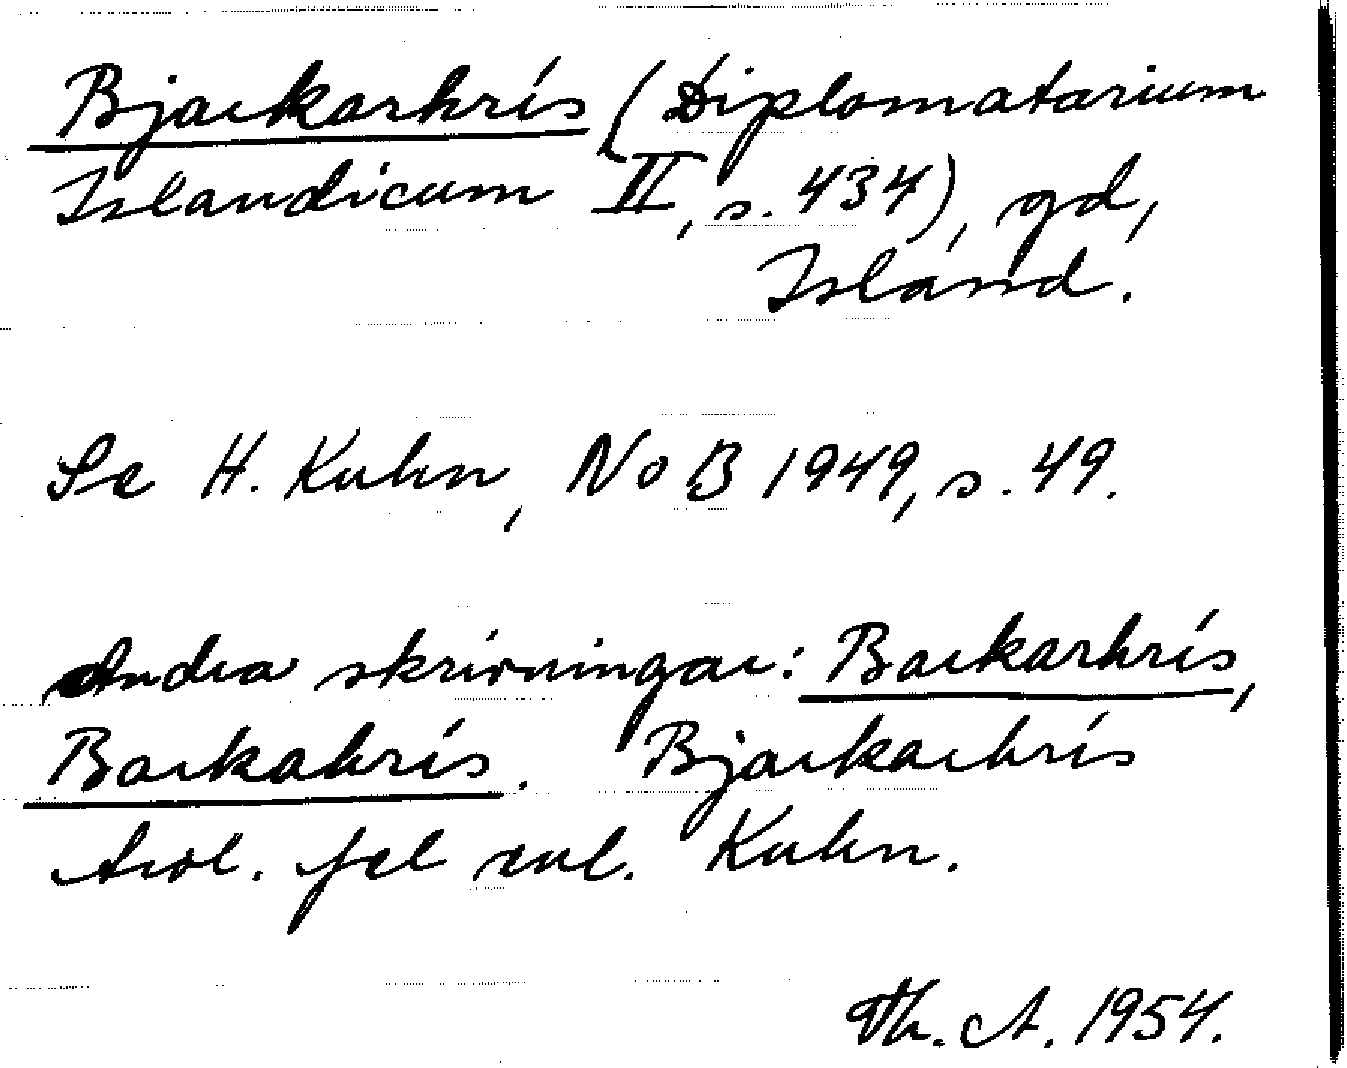 Bjarkarhrís (Diplomatarium
Islandicum II, s. 434), gd,
Island.
Se H. Kuhn, NoB 1949, s. 49.
Andra skrivningar: Barkarhrís,
Barkahrís. Bjarkarhrís
trol. fel enl. Kuhn.
Th. A. 1954.